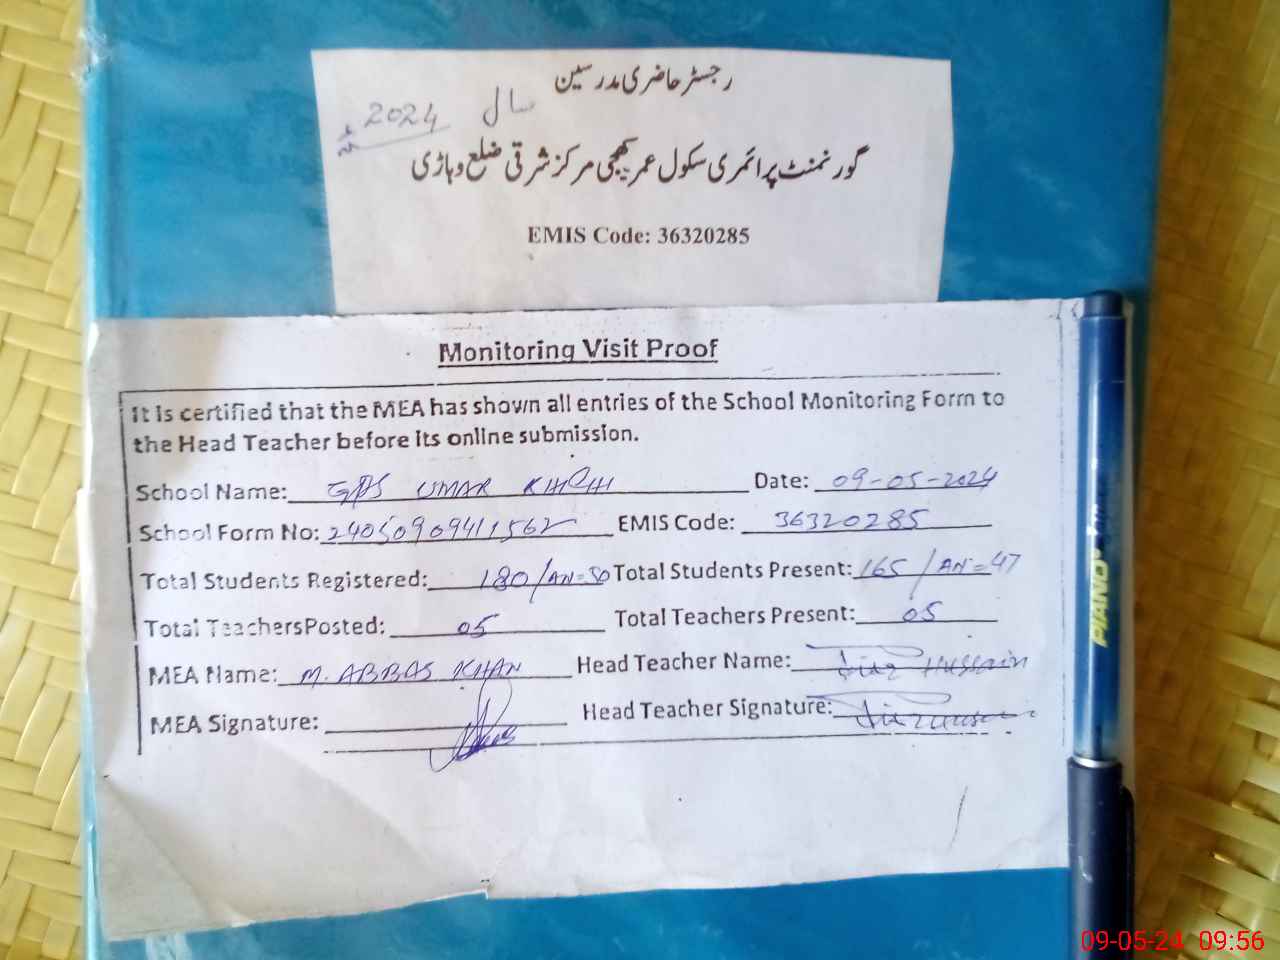 رجسٹر حاضری مدرسین
سال 2024ء
گورنمنٹ پرائمری سکول عمر کھچی مرکز شرقی ضلع وہاڑی
EMIS Code: 36320285
Monitoring Visit Proof
It is certified that the MEA has shown all entries of the School Monitoring Form to
the Head Teacher before its online submission.
School Name: GPS UMAR KHICHI Date: 09-05-2024
School Form No: 24050909411562 EMIS Code: 36320285
Total Students Registered: 180/AN=50 Total Students Present: 165/AN=47
Total TeachersPosted: 05 Total Teachers Present: 05
MEA Name: M. ABBAS KHAN Head Teacher Name: Hussain
MEA Signature: Head Teacher Signature:
PIANO
09-05-24 09:56